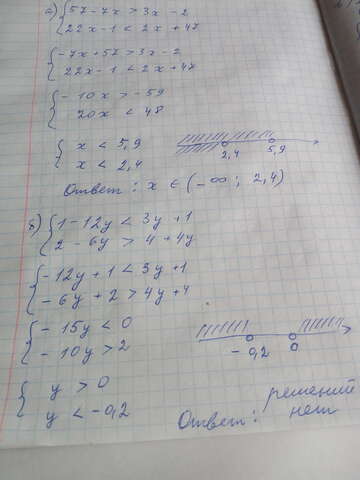 а) { 57 - 7x > 3x - 2
22x - 1 < 2x + 47
{ -7x + 57 > 3x - 2
22x - 1 < 2x + 47
{ -10x > -59
20x < 48
{ x < 5,9
x < 2,4
2,4 5,9
Ответ: x ∈ (-∞; 2,4)
б) { 1 - 12y < 3y + 1
2 - 6y > 4 + 4y
{ -12y + 1 < 3y + 1
-6y + 2 > 4y + 4
{ -15y < 0
-10y > 2
-0,2 0
{ y > 0
y < -0,2
Ответ: решений
нет